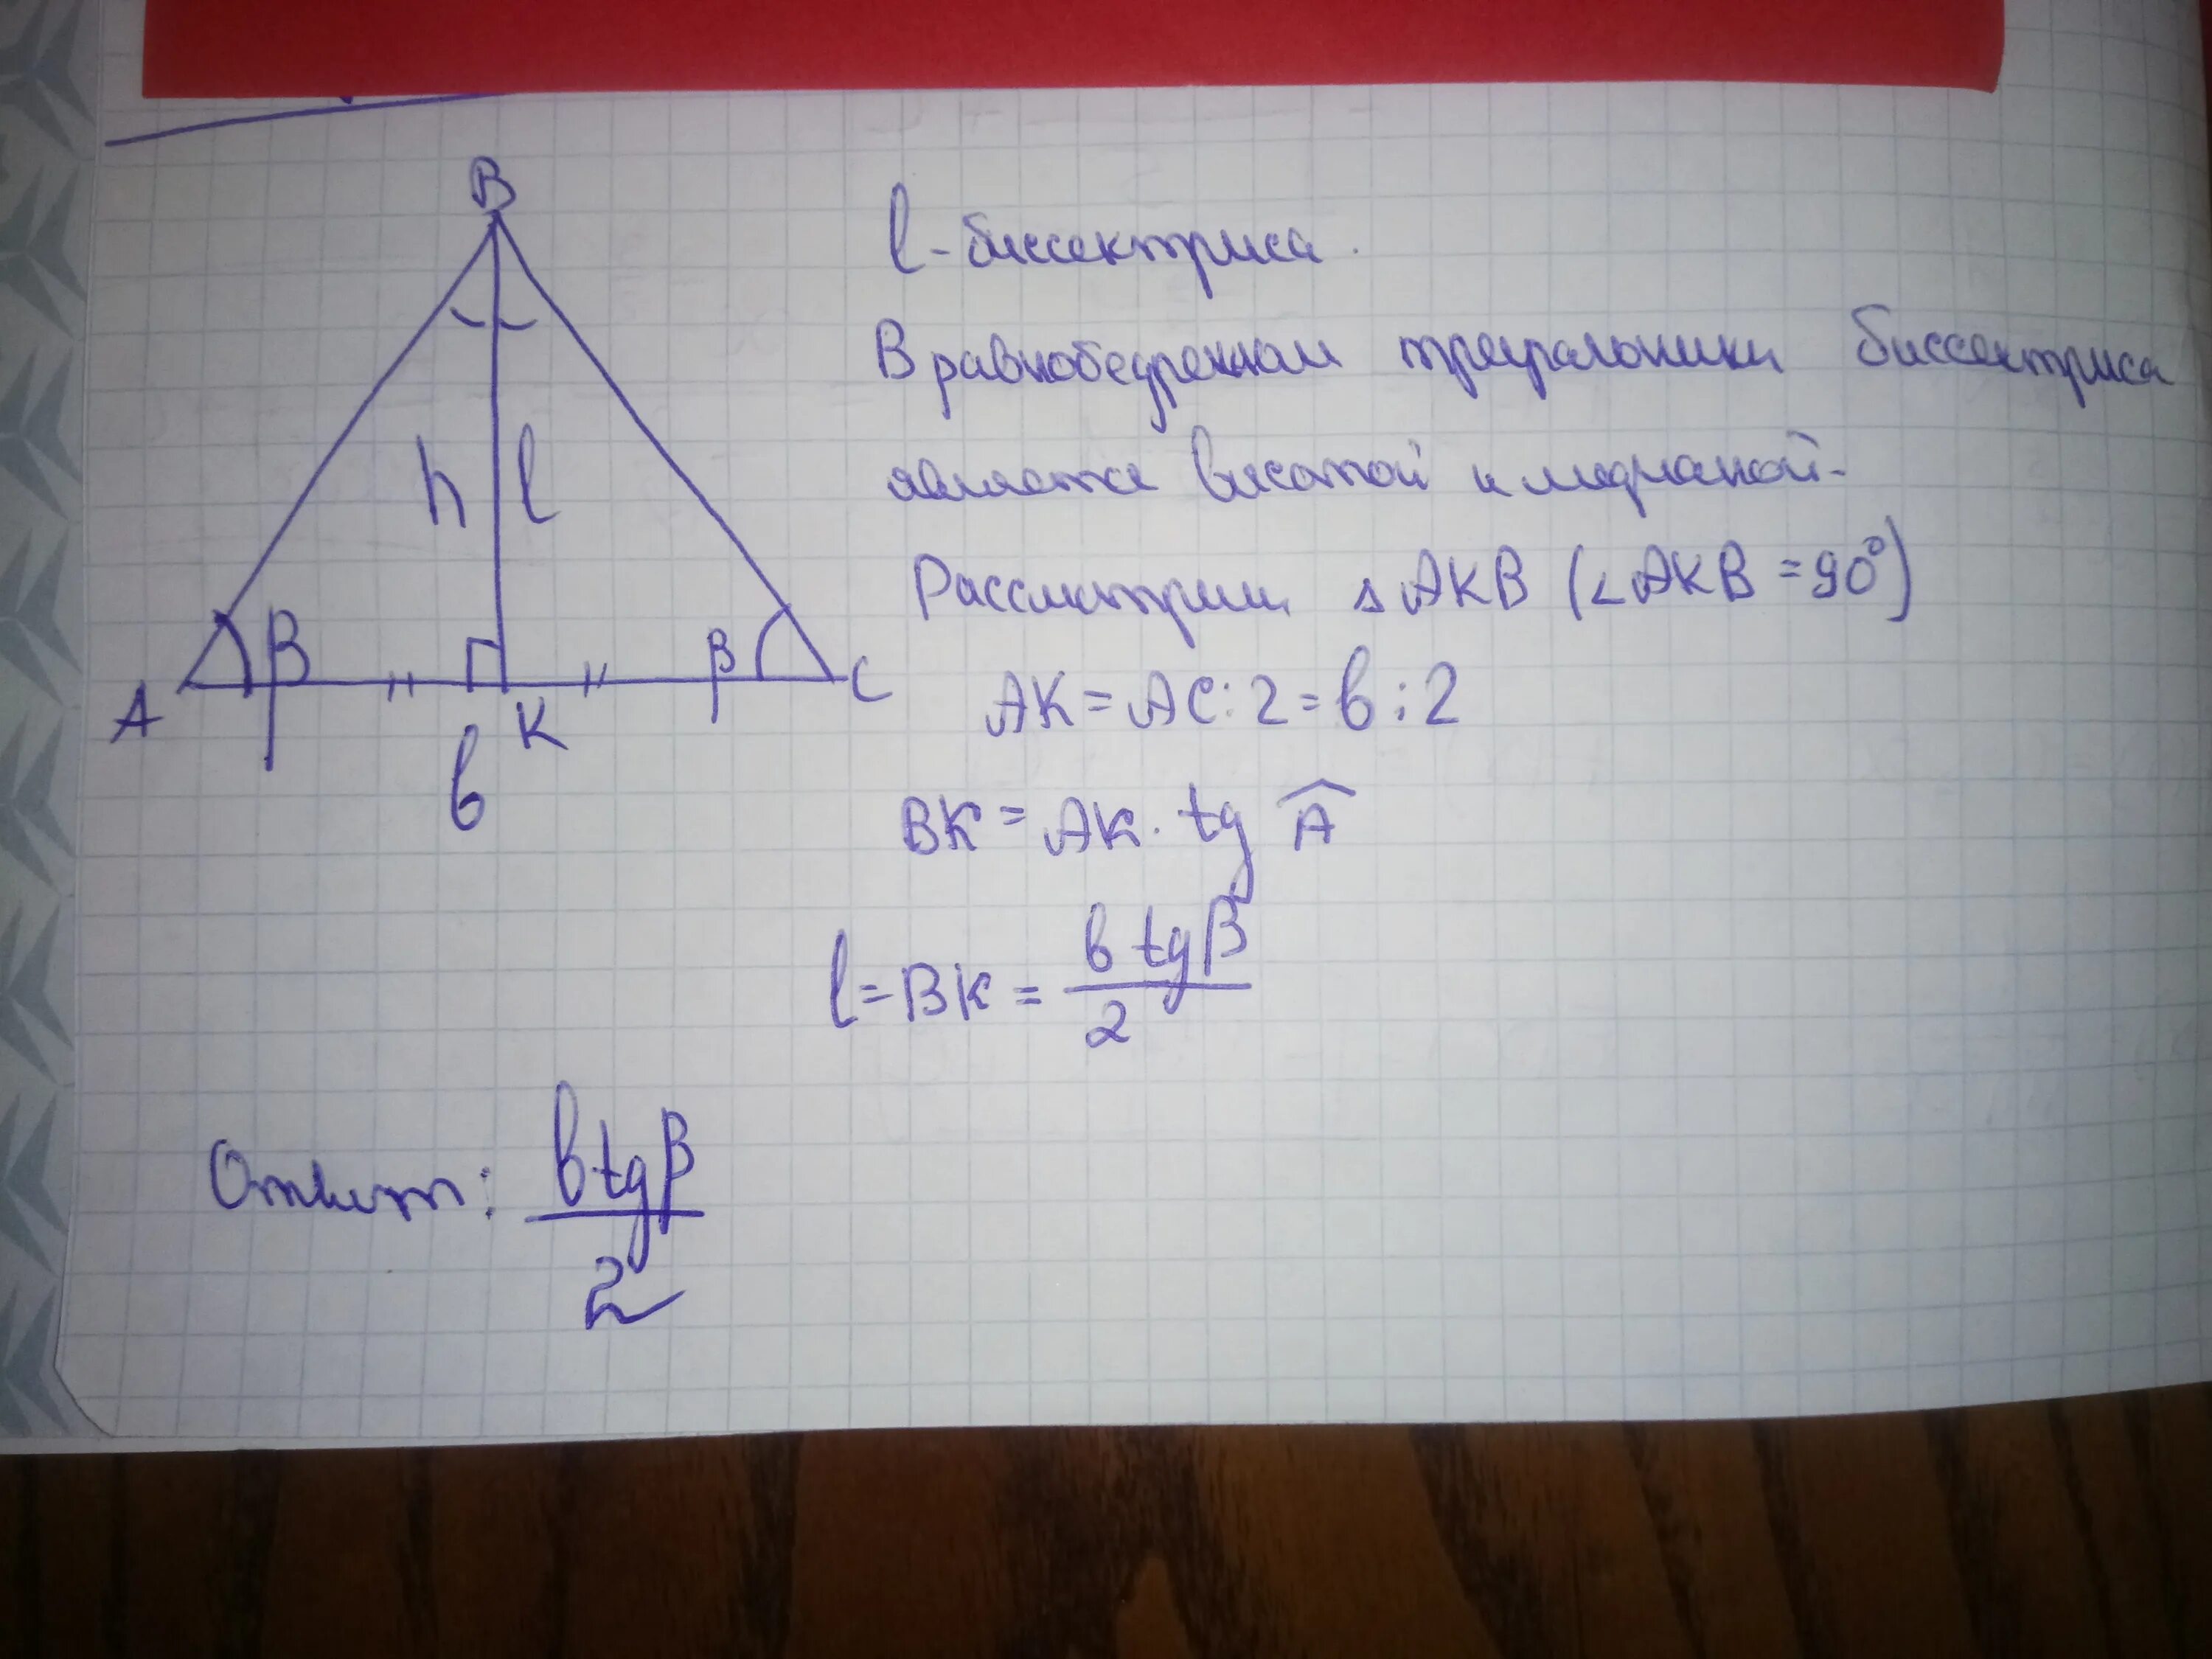 B
h l
β β
A K C
в
l - биссектриса.
В равнобедренном треугольники биссектриса
является высотой и медианой.
Рассмотрим △AKB (∠AKB = 90°)
AK = AC : 2 = в : 2
BK = AK · tg Â
l = BK = в tg β / 2
Ответ: в tg β / 2